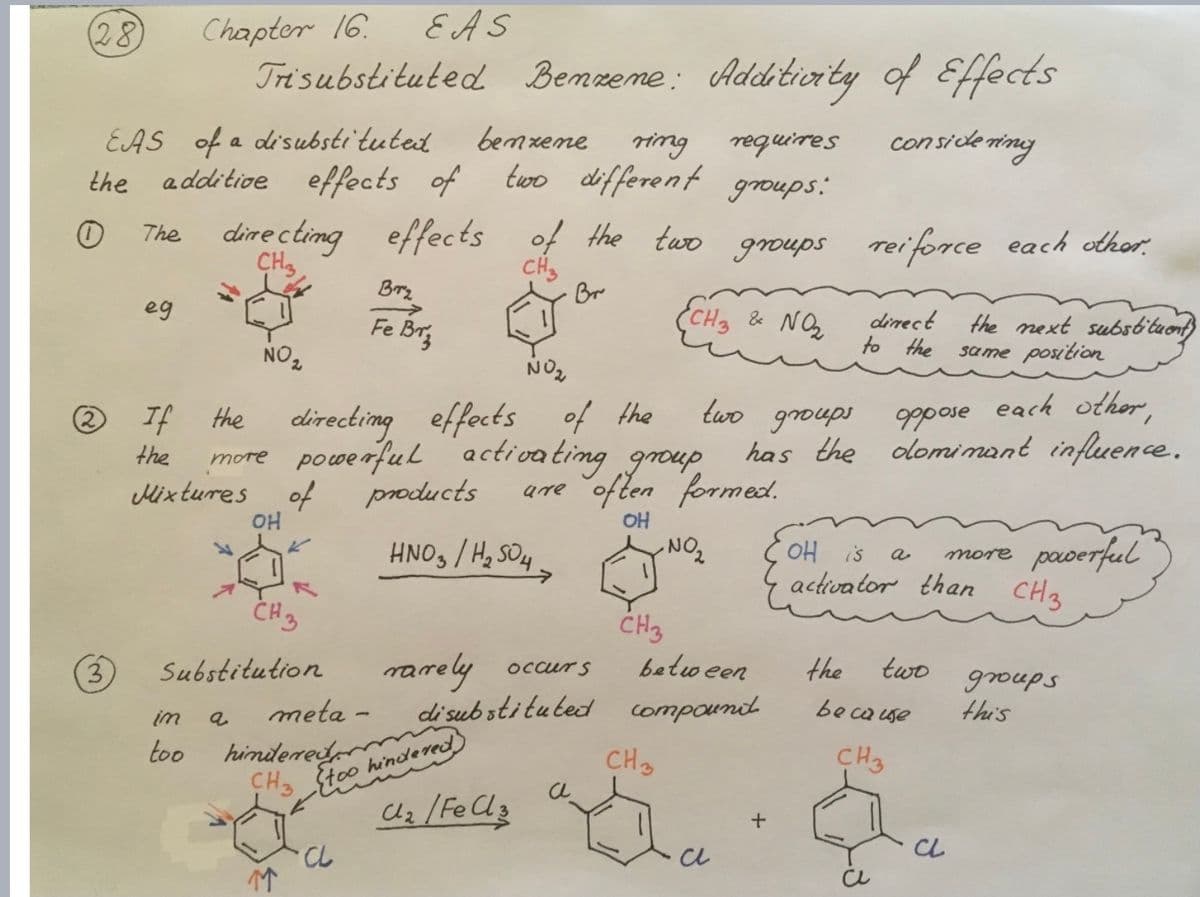 28 Chapter 16. EAS
Trisubstituted Benzene: Additivity of Effects
EAS of a disubstituted benzene ring requires considering
the additive effects of two different groups:
① The directing effects of the two groups reiforce each other.
CH₃ CH₃
eg Br₂ Br
Fe Br₃
NO₂ NO₂
CH₃ & NO₂ direct the next substituent
to the same position
② If the directing effects of the two groups oppose each other,
the more powerful activating group has the dominant influence.
Mixtures of products are often formed.
OH OH
HNO₃ / H₂SO₄ NO₂
CH₃ CH₃
OH is a more powerful
activator than CH₃
③ Substitution rarely occurs between the two groups
in a meta- disubstituted compound because this
too hindered
too hindered
CH₃ CH₃ CH₃
Cl₂ / FeCl₃ Cl +
Cl Cl Cl
Cl